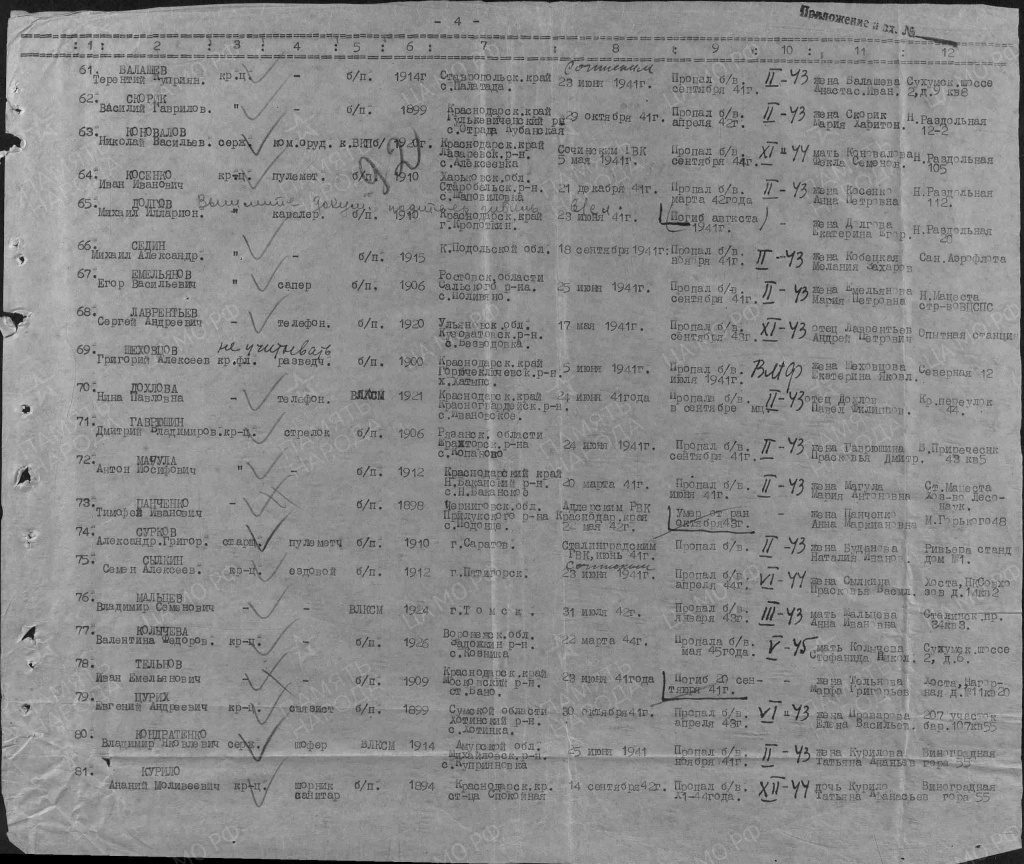 - 4 -
Приложение к вх. №
: 1: 2 : 3 : 4 : 5 : 6 : 7 : 8 : 9 : 10 : 11 : 12
Сочинским
61. БАЛАШЕВ
Терентий Куприян. кр.ц. - б/п. 1914г Ставропольск.край 23 июня 1941г. Пропал б/в. II-43 жена Балашова Сухумск.шоссе
с.Палагада. сентября 41г. Анастас.Иван. 2,д.9 кв8
62. СКОРИК
Василий Гаврилов. " - б/п. 1899 Краснодарск.край 29 октября 41г. Пропал б/в. II-43 жена Скорик Н.Раздольная
Гулькевичский рн апреля 42г. Мария Харитон. 12-2
с.Отрада Кубанская
63. КОНОВАЛОВ
Николай Васильев. серж. ком.оруд. к.ВКПб/ 1920г. Краснодарск.край Сочинским ГВК Пропал б/в. XI-44 мать Коновалова Н.Раздольная
Лазаревск.р-н. 5 мая 1941г. сентября 44г. Фекла Семенон. 105
с.Алексеевка
64. КОСЕНКО
Иван Иванович кр-ц. пулемет. б/п. 1910 Харьковск.обл. 21 декабря 41г. Пропал б/в. II-43 жена Косенко Н.Раздольная
Старобельск.р-н. марта 42года Анна Петровна 112.
65. ДОЛГОВ
Михаил Илларион. " кавалер. б/п. 1910 Краснодарск.край 23 июня 41г. (Погиб августа) - жена Долгова Н.Раздольная
г.Кропоткин. 1941г. Екатерина Егор. 20
66. СЕДИН
Михаил Александр. " - б/п. 1915 К.Подольской обл. 18 сентября 1941г: Пропал б/в. II-43 жена Кобецкая Сан.Аэрофлота
ноября 41г. Мелания Захаров
67. ЕМЕЛЬЯНОВ
Егор Васильевич " сапер б/п. 1906 Ростовск.области 25 июня 1941г. Пропал б/в. II-43 жена Емельянова Н.Мацеста
Сальского р-на. сентября 41г. Мария Петровна стр-воВЦСПС
68. ЛАВРЕНТЬЕВ
Сергей Андреевич - телефон. б/п. 1920 Ульяновск.обл. 17 мая 1941г. Пропал б/в. XI-43 отец Лаврентьев Опытная станци
Кузоватовск.р-н. сентября 43г. Андрей Петрович
с.Безводовка.
не учитывать
69. ШЕХОВЦОВ
Григорий Алексеев кр.фл. разведч. б/п. 1900 Краснодарск.край 5 июня 1941г. Пропал б/в. ВМФ жена Шеховцова Северная 12
Горячеключевск.р-н. июля 1941г. Екатерина Яковл.
70. ДОХЛОВА
Нина Павловна - телефон. ВЛКСМ 1921 Краснодарск.край 24 июня 41года Пропала б/в. II-43 отец Дохлов Кр.переулок
Красногвардейск.р-н. в сентябре Павел Филиппов. 44.
с.Ивановское.
71. ГАВРЮШИН
Дмитрий Владимиров.кр-ц. стрелок б/п. 1906 Рязанск. области 24 июня 1941г. Пропал б/в. II-43 жена Гаврюшина
сентября 41г. Прасковья Дмитр. 43 кв5
72. МАГУЛА
Антон Иосифович " - б/п. 1912 Краснодарский край 20 марта 41г. Пропал б/в. II-43 жена Магула Ст.Мацеста
Н.Баканский р-н. июня 41г. Мария Антоновна
с.Н.Баканское
73. ПАНЧЕНКО
Тимофей Иванович - - б/п. 1898 Черниговск.обл. Адлерским РВК Умер от ран - жена Панченко М.Горького48
Прилукского р-на Краснодар.края октября43г. Анна Мартиановна
22 мая 42г.
74. СУРКОВ
Александр.Григор. старш. пулеметч б/п. 1910 г.Саратов. Сталинградским Пропал б/в. II-43 жена Буданова Ривьера станд
ГВК,июнь 41г. Наталия Иванов. дом №1.
Сочинским
75. СЫЛКИН
Семен Алексеев. кр-ц. ездовой б/п. 1912 г.Пятигорск. 23 июня 1941г. Пропал б/в. VI-44 жена Сылкина
апреля 44г. Прасковья Васил.
76. МАЛЬЦЕВ
Владимир Семенович - - ВЛКСМ 1924 г.Томск. 31 июля 42г. Пропал б/в. III-43 мать Мальцева Сталинск.пр.
января 43г. Анна Ивановна 34кв3.
77. КОЛЫЧЕВА
Валентина Федоров. кр-ц. - б/п. 1926 Воронежск.обл. 22 марта 44г. Пропала б/в. V-45 мать Колычева Сухумск.шоссе
Задонкин р-н. мая 45года. Стефанида Никол. 2, д.6.
с.Козинка
78. ТЕЛЬНОВ
Иван Емельянович - - б/п. 1909 Краснодарск.край 23 июня 41года Погиб 20 сен- - жена Тельнова Хоста,Нагор-
Московский р-н. тября 41г. Марфа Григорьев ная д.№11кв20
79. ЦУРИХ
Евгений Андреевич кр-ц. связист б/п. 1899 Сумской области 30 октября41г. Пропал б/в. VI-43 жена Проварова 207 участок
Хотинский р-н. апреля 43г. Елена Васильев. бар.107кв55
с.Хотинка.
80. КОНДРАТЕНКО
Владимир Яковлевич серж. шофер ВЛКСМ 1914 Амурской обл. 25 июня 1941 Пропал б/в. II-43 жена Курилова Виноградная
Михайловск.р-н. ноября 41г. Татьяна Ананьев гора 55
с.Куприяновка
81. КУРИЛО
Ананий Моливеевич кр-ц. шорник б/п. 1894 Краснодарск.кр. 14 сентября42г. Пропал б/в. XII-44 дочь Курило Виноградная
санитар ст-ца Спокойная XI-44года. Татьяна Ананасьев гора 55